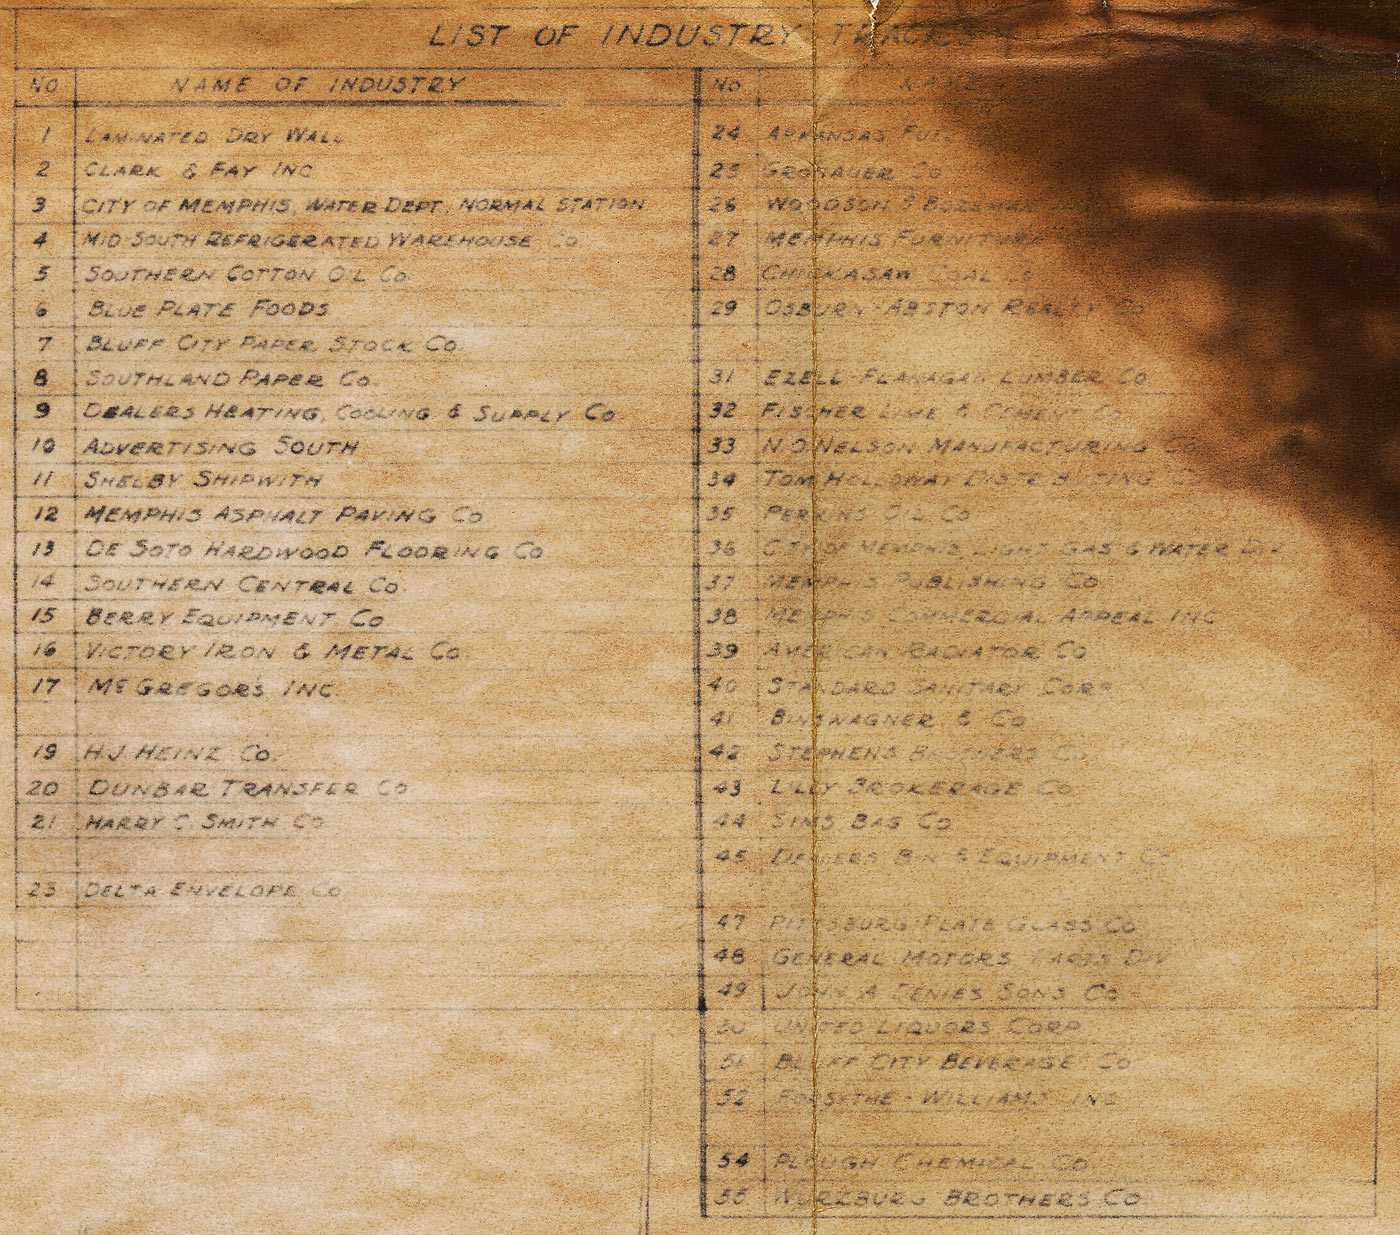 LIST OF INDUSTRY TRACKS
NO NAME OF INDUSTRY
1 LAMINATED DRY WALL
2 CLARK & FAY INC
3 CITY OF MEMPHIS, WATER DEPT, NORMAL STATION
4 MID-SOUTH REFRIGERATED WAREHOUSE Co.
5 SOUTHERN COTTON OIL Co.
6 BLUE PLATE FOODS
7 BLUFF CITY PAPER STOCK Co.
8 SOUTHLAND PAPER Co.
9 DEALERS HEATING, COOLING & SUPPLY Co.
10 ADVERTISING SOUTH
11 SHELBY SHIPWITH
12 MEMPHIS ASPHALT PAVING Co
13 DE SOTO HARDWOOD FLOORING Co.
14 SOUTHERN CENTRAL Co.
15 BERRY EQUIPMENT Co
16 VICTORY IRON & METAL Co.
17 McGREGOR'S INC.
19 H.J. HEINZ Co.
20 DUNBAR TRANSFER Co
21 HARRY C. SMITH Co.
23 DELTA ENVELOPE Co.
No
24 ARKANSAS FUEL
25 Co
26 WOODSON &
27 MEMPHIS FURNITURE
28 CHICKASAW COAL Co
29 OSBURN-ABSTON REALTY Co
31 EZELL-FLANAGAN LUMBER Co
32 FISCHER LIME & CEMENT Co.
33 N.O. NELSON MANUFACTURING Co.
34 TOM HOLLOWAY DISTRIBUTING Co
35 PERKINS OIL Co
36 CITY OF MEMPHIS, LIGHT GAS & WATER DIV
37 MEMPHIS PUBLISHING Co.
38 MEMPHIS COMMERCIAL APPEAL INC
39 AMERICAN RADIATOR Co
40 STANDARD SANITARY CORP
41 BINSWAGNER & Co
42 STEPHENS BROTHERS Co.
43 LILLY BROKERAGE Co.
44 SIMS BAG Co
45 DEALERS BIN & EQUIPMENT Co
47 PITTSBURG PLATE GLASS Co
48 GENERAL MOTORS PARTS DIV
49 JOHN A DENIES SONS Co
50 UNITED LIQUORS CORP
51 BLUFF CITY BEVERAGE Co
52 FORSYTHE-WILLIAMS INC
54 PLOUGH CHEMICAL Co.
55 WURZBURG BROTHERS Co